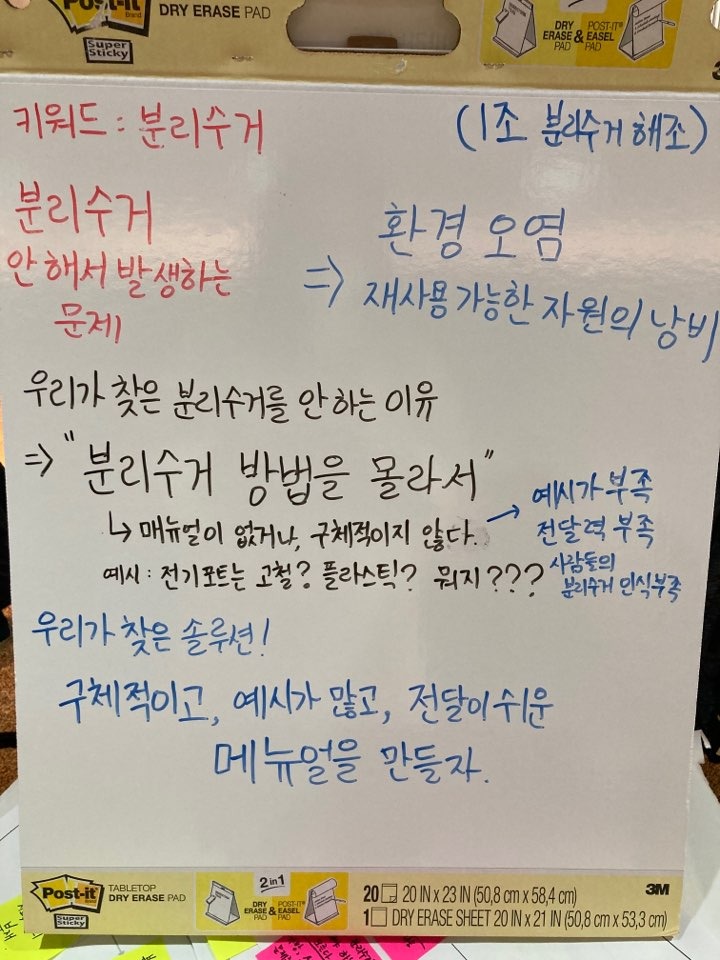 Post-it Brand
Super Sticky
DRY ERASE PAD
DRY ERASE PAD & POST-IT® EASEL PAD
키워드 : 분리수거
(1조 분리수거 해조)
분리수거
안 해서 발생하는
문제
⇒ 환경 오염
재사용 가능한 자원의 낭비
우리가 찾은 분리수거를 안 하는 이유
⇒ "분리수거 방법을 몰라서"
↳ 매뉴얼이 없거나, 구체적이지 않다.
→ 예시가 부족
전달력 부족
사람들의
분리수거 인식부족
예시 : 전기포트는 고철? 플라스틱? 뭐지???
우리가 찾은 솔루션!
구체적이고, 예시가 많고, 전달이 쉬운
메뉴얼을 만들자.
Post-it Brand
Super Sticky
TABLETOP
DRY ERASE PAD
2 in 1
DRY ERASE PAD & POST-IT® EASEL PAD
20 20 IN x 23 IN (50,8 cm x 58,4 cm)
1 DRY ERASE SHEET 20 IN x 21 IN (50,8 cm x 53,3 cm)
3M